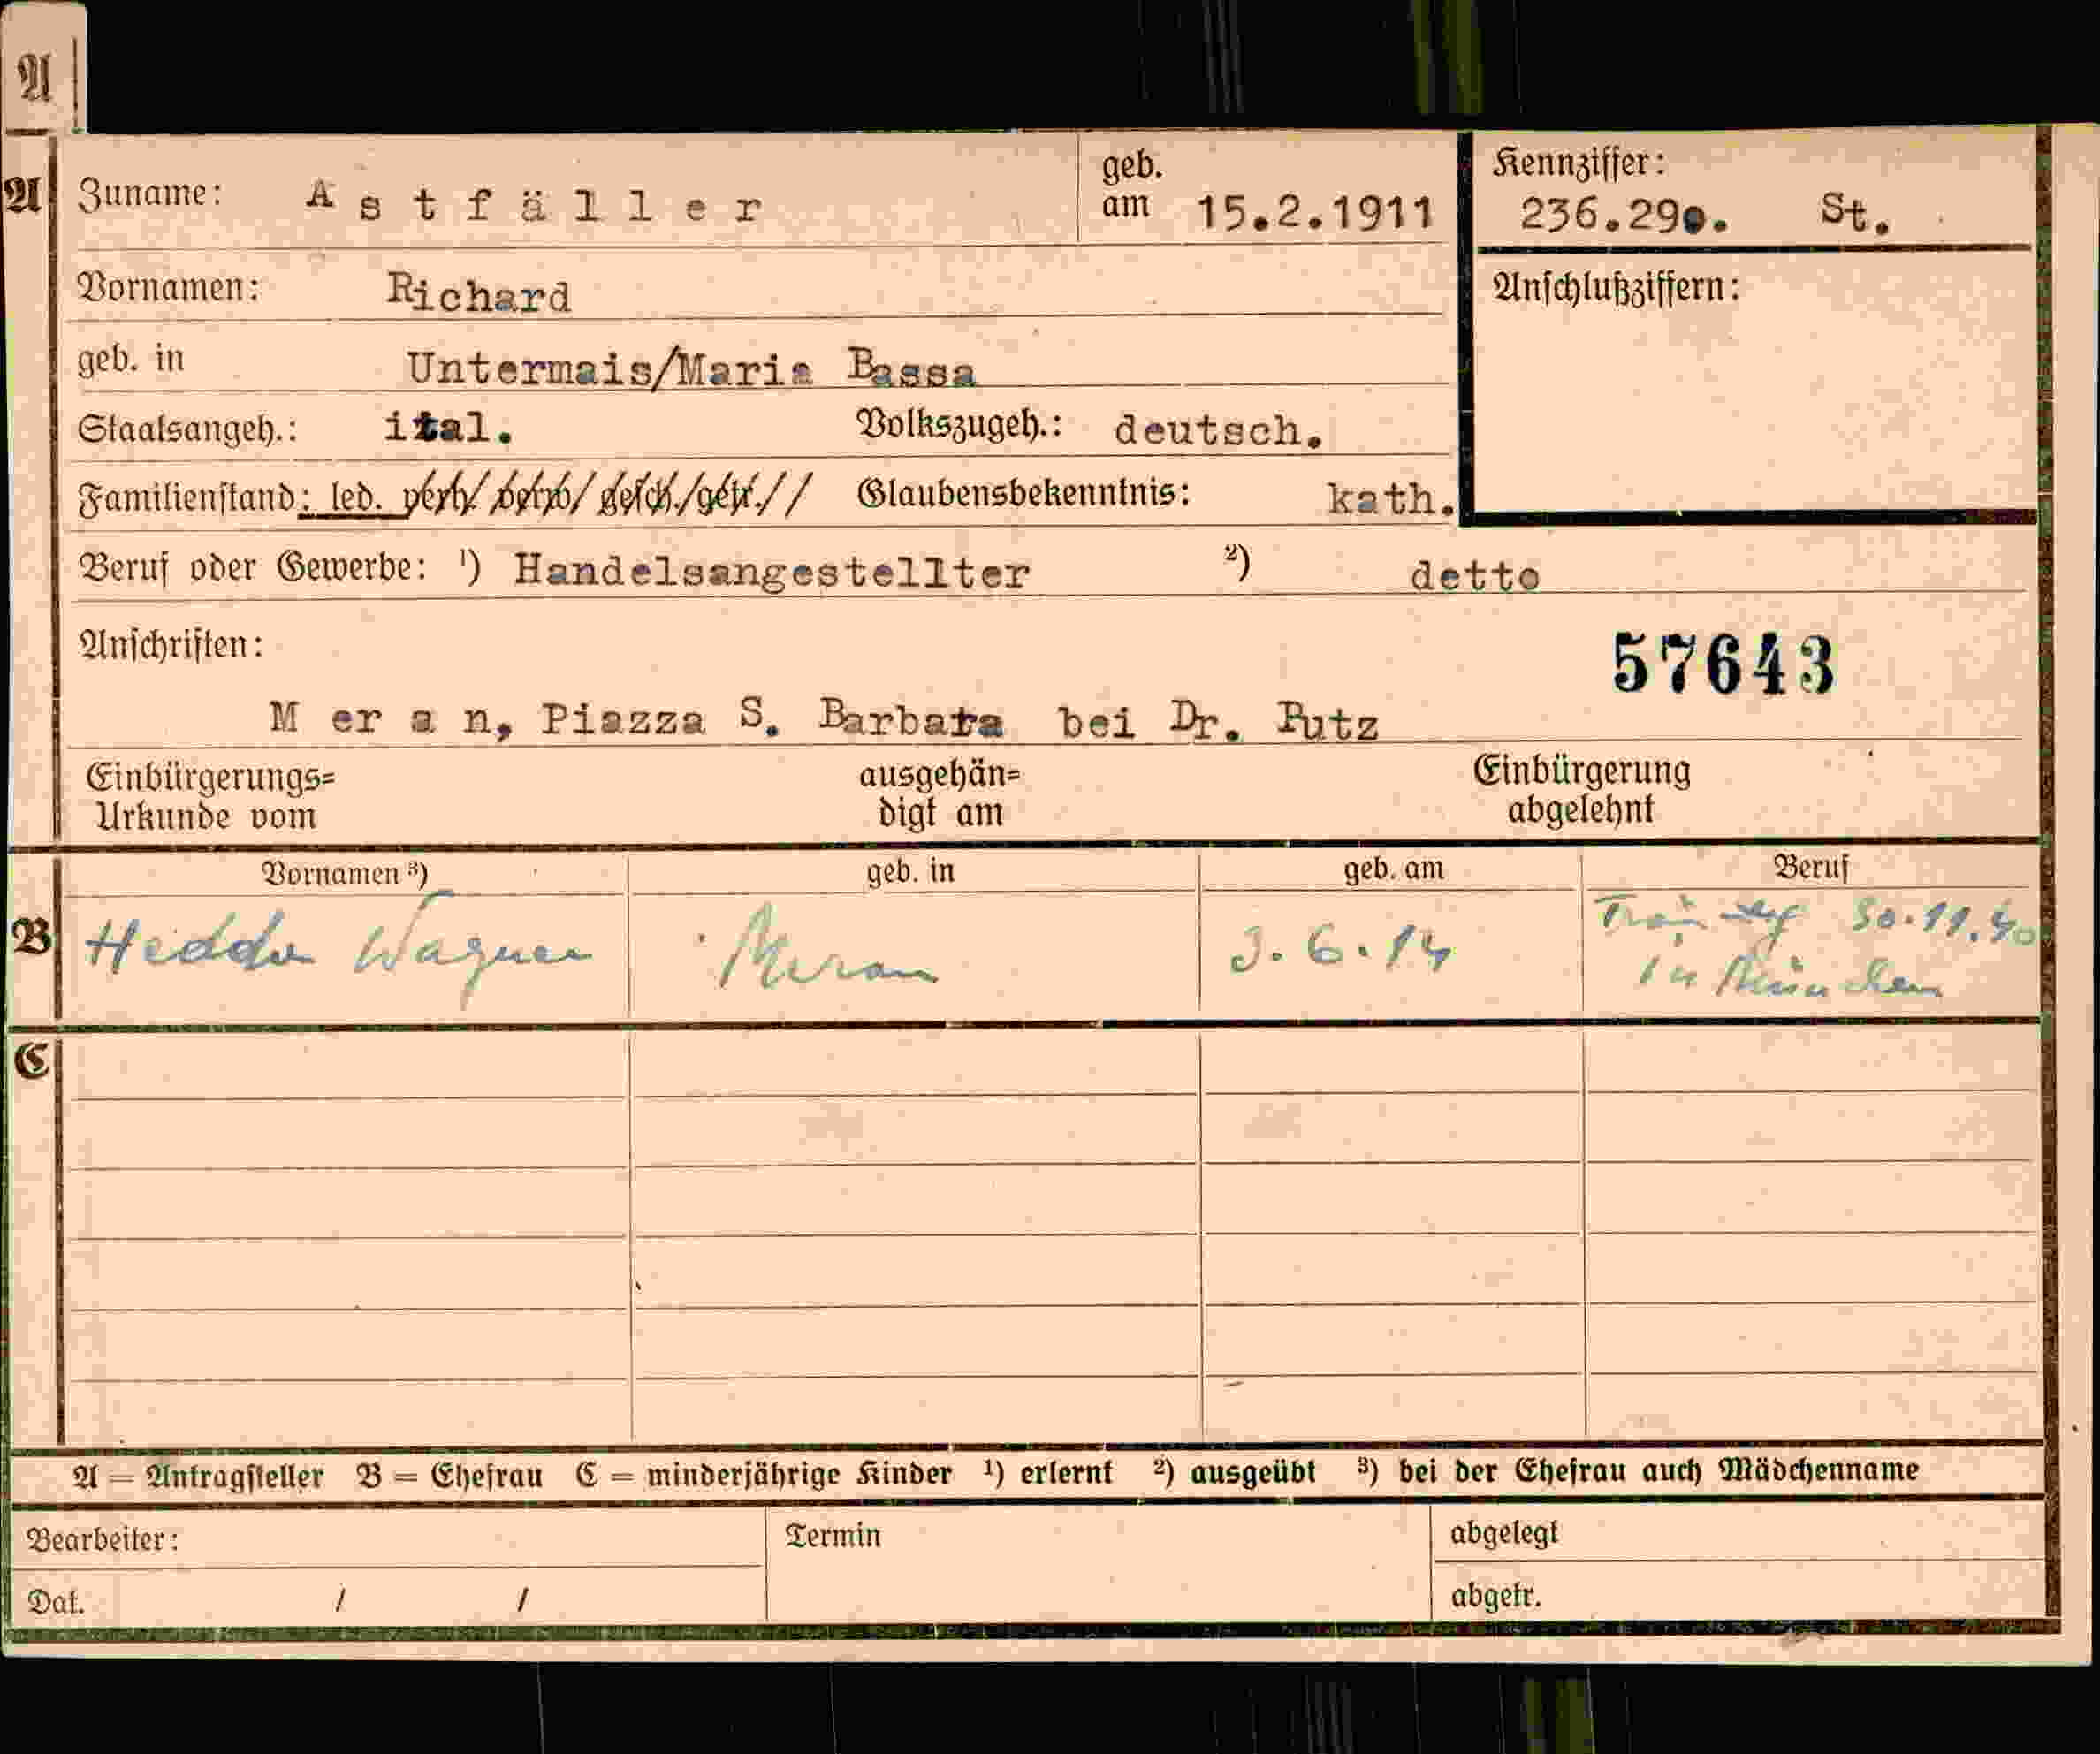 A
A
Zuname: Astfäller geb. am 15.2.1911
Kennziffer: 236.290. St.
Vornamen: Richard
Anschlußziffern:
geb. in Untermais/Maria Bassa
Staatsangeh.: ital. Volkszugeh.: deutsch.
Familienstand: led. verh/ verw/ gesch./getr.// Glaubensbekenntnis: kath.
Beruf oder Gewerbe: ¹) Handelsangestellter ²) detto
Anschriften:
57643
Meran, Piazza S. Barbara bei Dr. Putz
Einbürgerungs= Urkunde vom ausgehän= digt am Einbürgerung abgelehnt
Vornamen ³) geb. in geb. am Beruf
B
Hedda Wagner Meran 3.6.14 30.11.40
in München
C
A = Antragsteller B = Ehefrau C = minderjährige Kinder ¹) erlernt ²) ausgeübt ³) bei der Ehefrau auch Mädchenname
Bearbeiter: Termin abgelegt
Dat. / / abgetr.